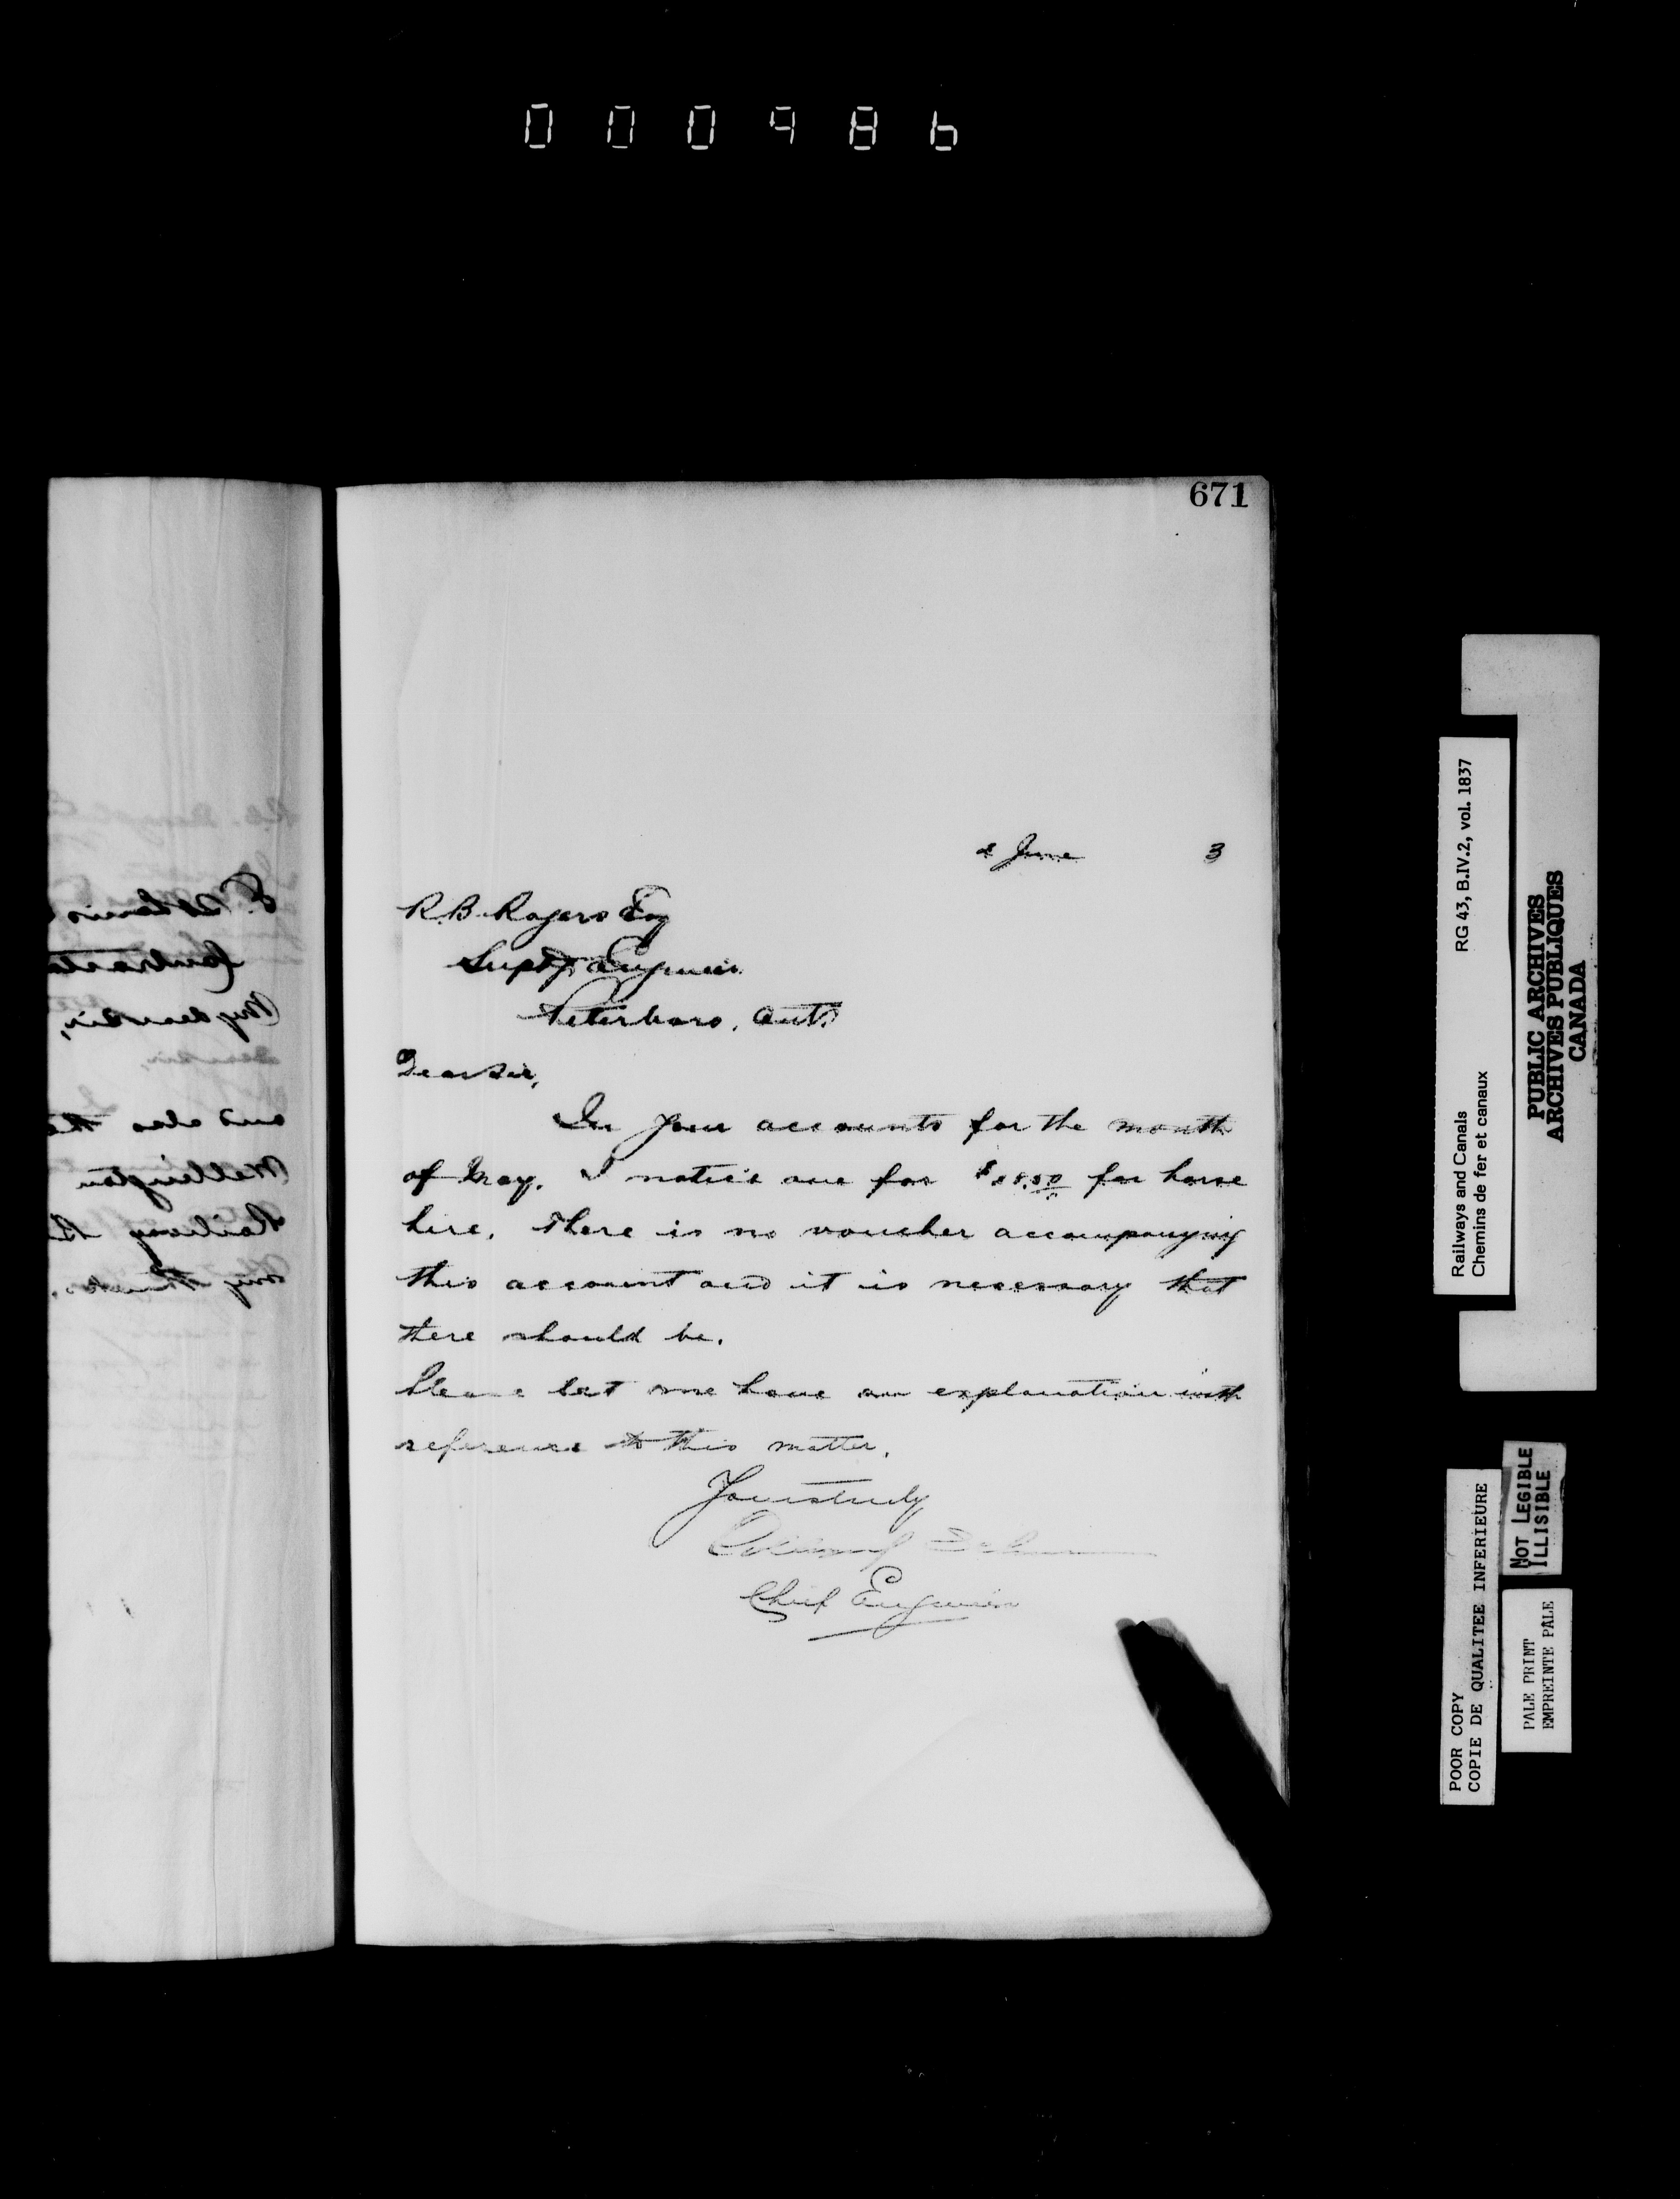 000986
671
2 June 3
R.B. Rogers Esq
Supt. Engineer
Peterboro, Ont.
Dear Sir,
In your accounts for the month
of May, I notice one for for horse
hire. There is no voucher accompanying
this account and it is necessary that
there should be.
Please let me have an explanation with
reference to this matter.
Yours truly
Chief Engineer
My dear Sir,
and also the
Wellington
Railway
my thanks.
Railways and Canals RG 43, B.IV.2, vol. 1837
Chemins de fer et canaux
PUBLIC ARCHIVES
ARCHIVES PUBLIQUES
CANADA
POOR COPY
COPIE DE QUALITEE INFERIEURE
NOT LEGIBLE
ILLISIBLE
PALE PRINT
EMPREINTE PALE